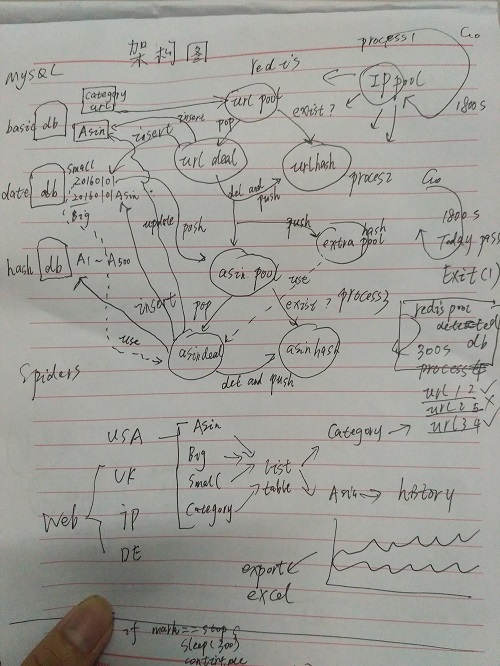 架构图
MySQL
redis
process1
Go
IP pool
1800s
category
url
url pool
basic db
Asin
insert
insert
pop
exist?
url deal
urlhash
process2
date db
small
20160101
20160101Asin
Big
del and
push
Go
1800s
Today pass
Exit(1)
update
push
push
hash
extra pool
hash db
A1~A500
asin pool
use
insert
pop
exist?
process3
use
asindeal
asinhash
del and push
redis pool
db
300s
process
url 1 2 ✓
url 2 3 ✗
url 3 4 ✓
Spiders
Web
USA
UK
jp
DE
Asin
Big
Small
Category
list
table
Category
Asin
history
export
excel
if mark == stop {
sleep(300)
continue